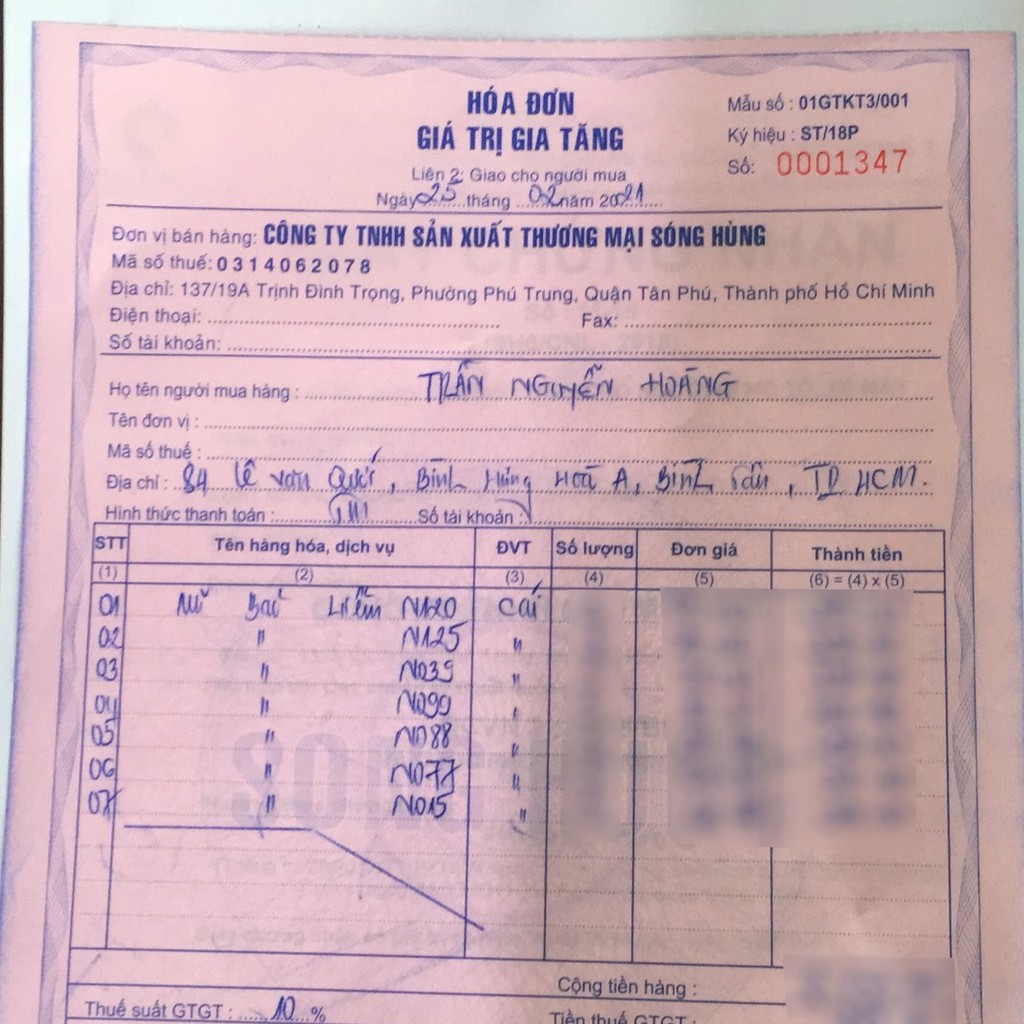 HÓA ĐƠN
GIÁ TRỊ GIA TĂNG
Liên 2: Giao cho người mua
Ngày 25 tháng 02 năm 2021
Mẫu số : 01GTKT3/001
Ký hiệu : ST/18P
Số: 0001347
Đơn vị bán hàng: CÔNG TY TNHH SẢN XUẤT THƯƠNG MẠI SÓNG HÙNG
Mã số thuế: 0314062078
Địa chỉ: 137/19A Trịnh Đình Trọng, Phường Phú Trung, Quận Tân Phú, Thành phố Hồ Chí Minh
Điện thoại: Fax:
Số tài khoản:
Họ tên người mua hàng : TRẦN NGUYỄN HOÀNG
Tên đơn vị :
Mã số thuế :
Địa chỉ : 84 Lê Văn Quới, Bình Hưng Hoà A, Bình Tân, TP HCM.
Hình thức thanh toán : TM Số tài khoản :
STT Tên hàng hóa, dịch vụ ĐVT Số lượng Đơn giá Thành tiền
(1) (2) (3) (4) (5) (6) = (4) x (5)
01 Mũ Bảo Hiểm N120 Cái
02 " N125 "
03 " N039 "
04 " N090 "
05 " N088 "
06 " N077 "
07 " N015 "
Cộng tiền hàng :
Thuế suất GTGT : 10 % Tiền thuế GTGT :